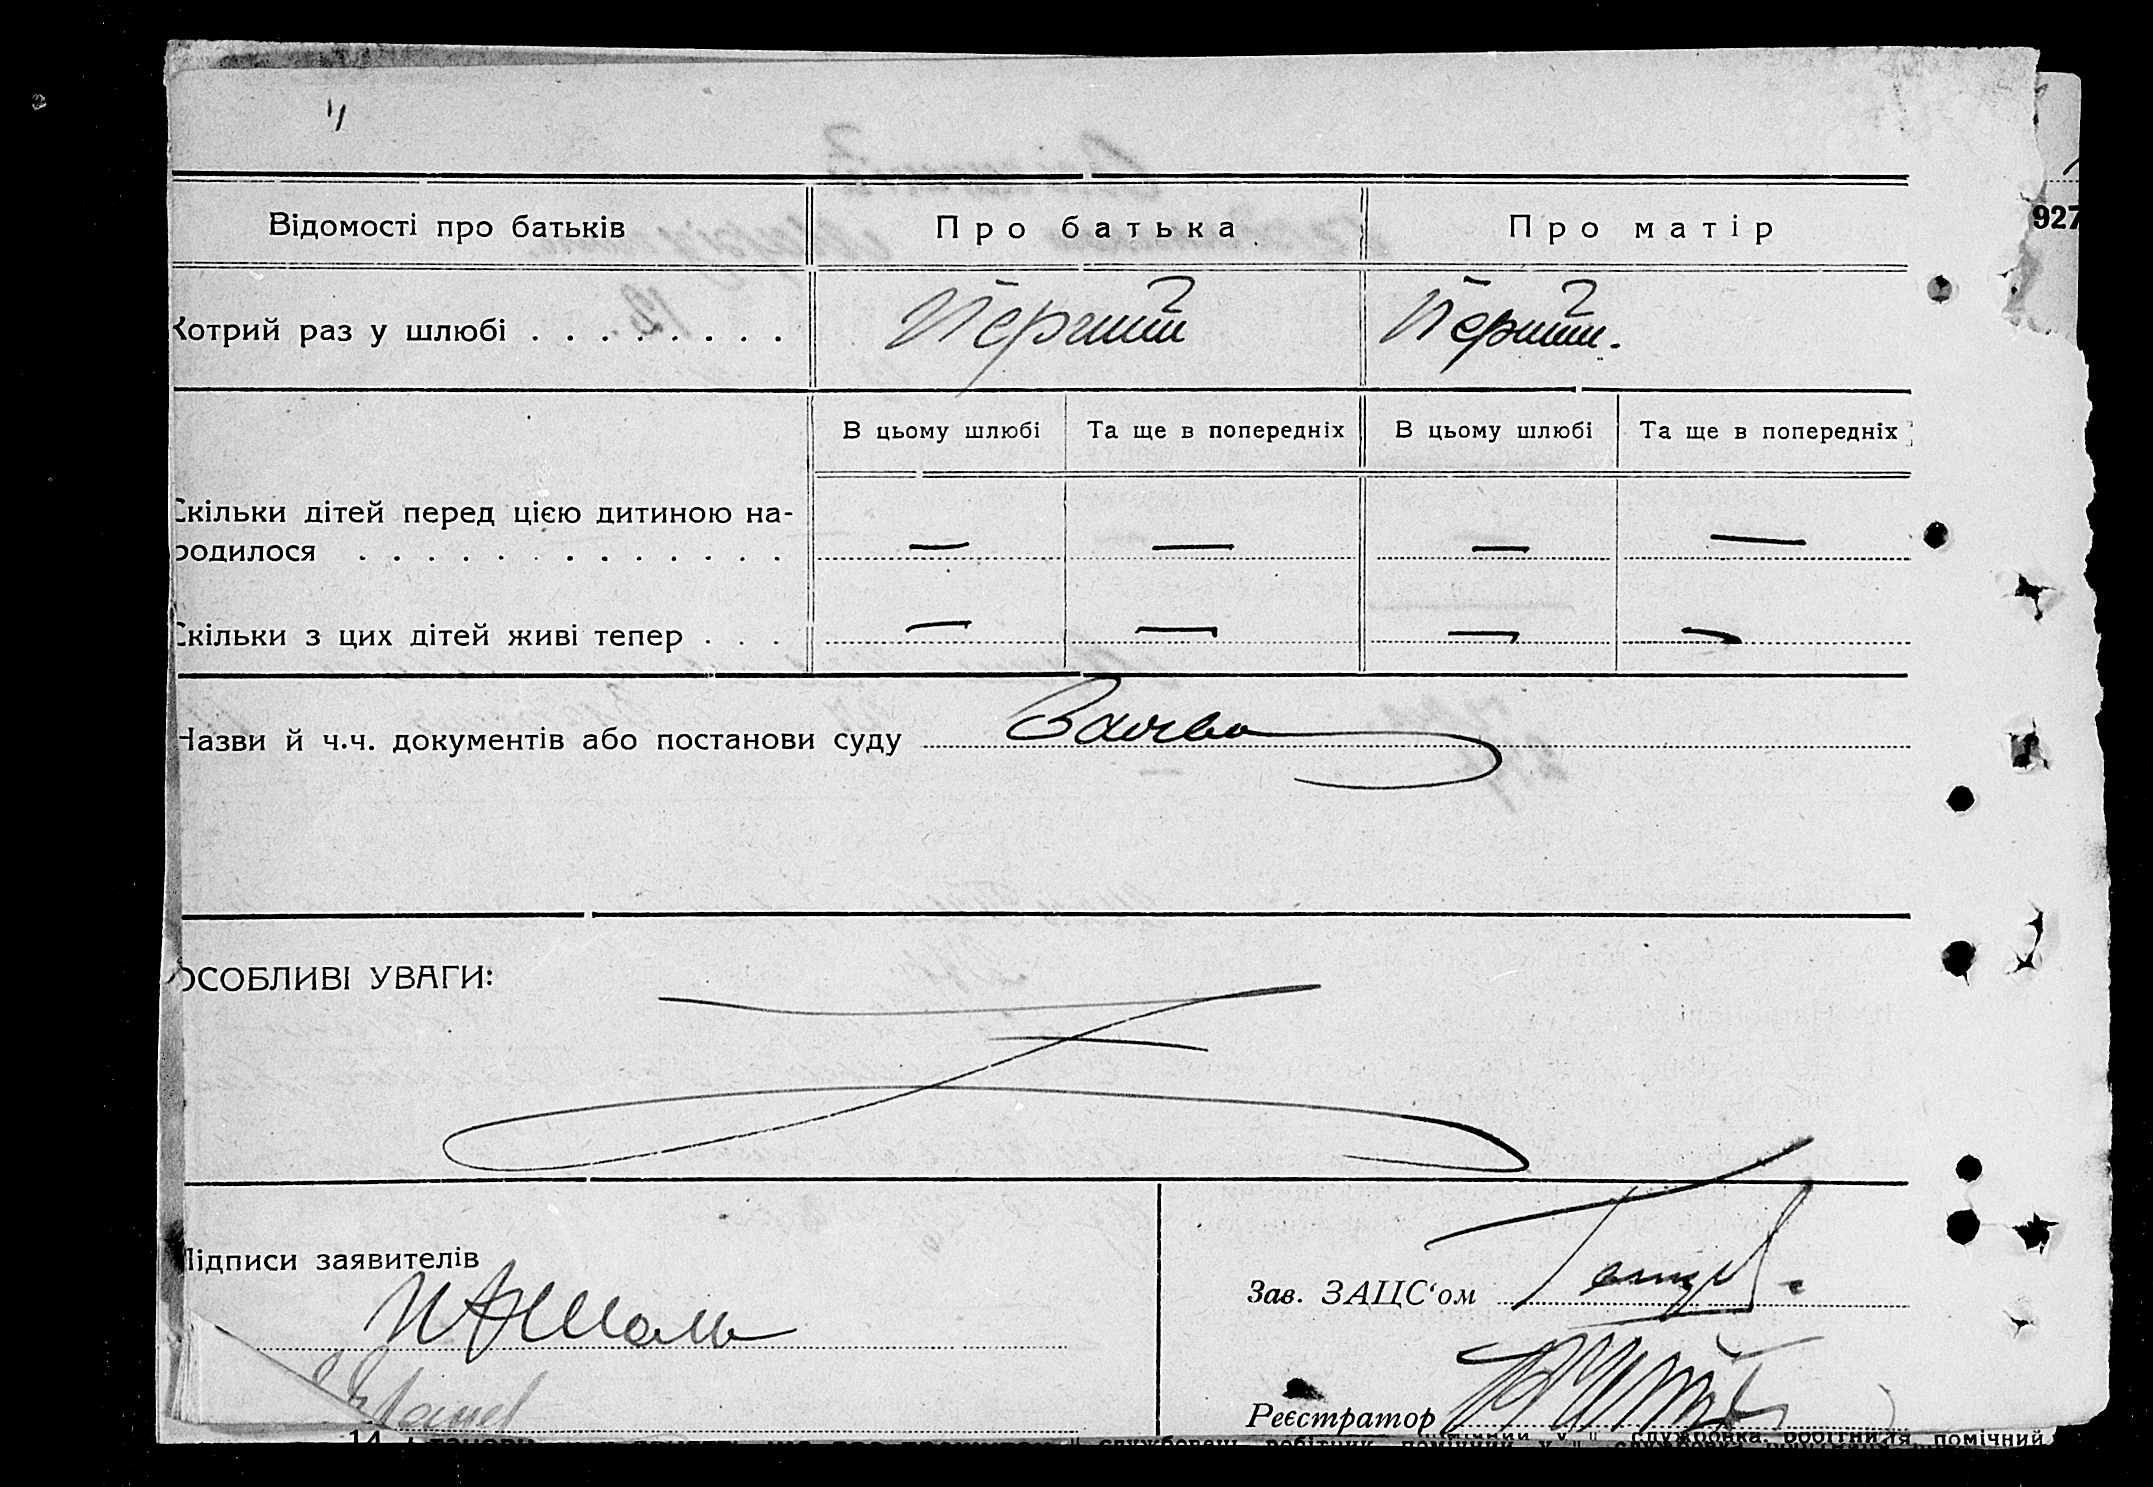 Відомості про батьків Про батька Про матір
927
Котрий раз у шлюбі . . . . . . . . Перший Перший.
В цьому шлюбі Та ще в попередніх В цьому шлюбі Та ще в попередніх
Скільки дітей перед цією дитиною на-
родилося . . . . . . . . . . . . . — — — —
Скільки з цих дітей живі тепер . . . — — — —
Назви й ч.ч. документів або постанови суду
ОСОБЛИВІ УВАГИ:
Підписи заявителів
Зав. ЗАЦС‘ом
Реєстратор
помічний